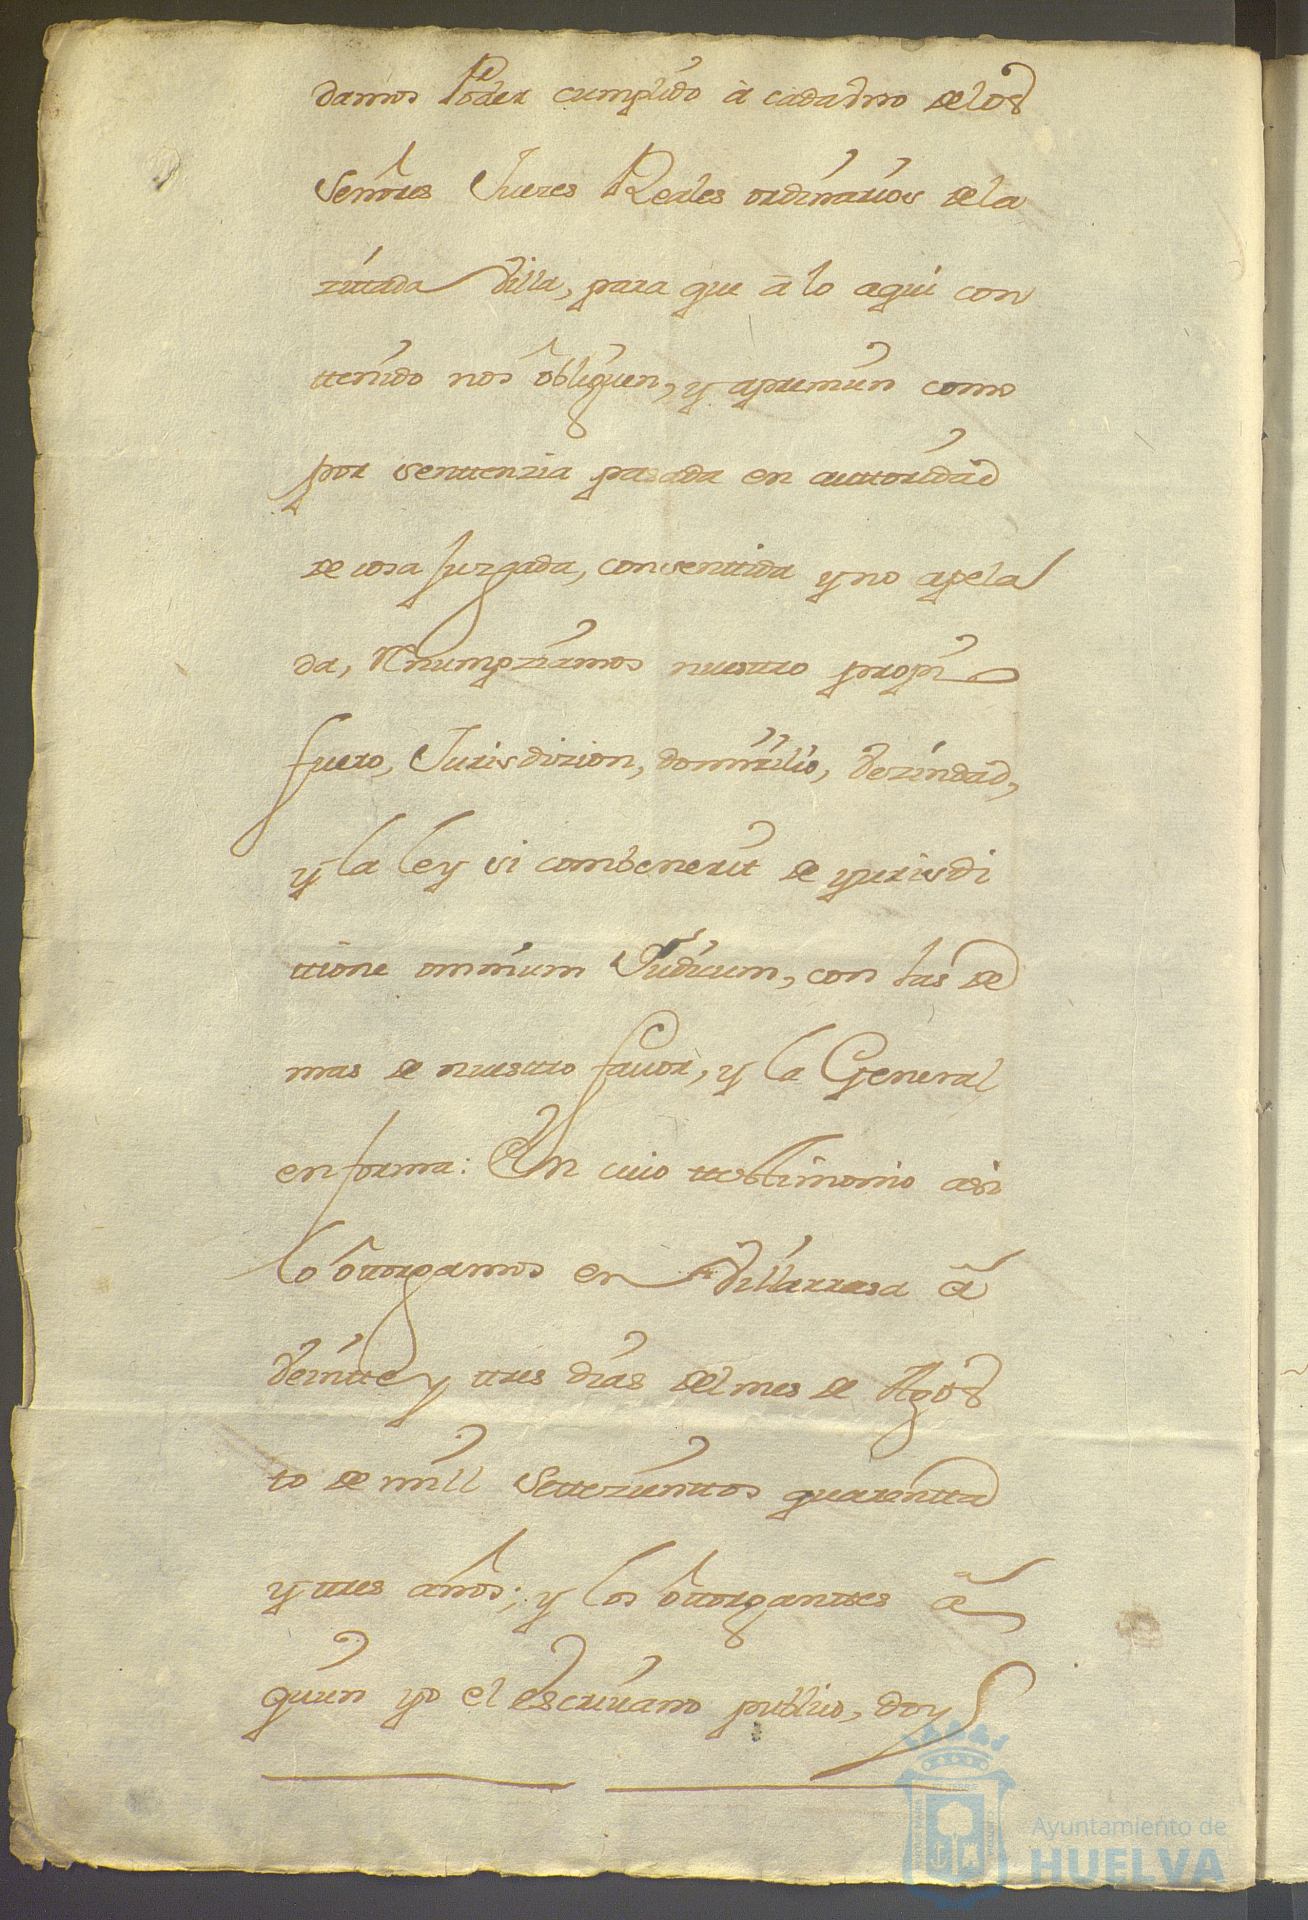 damos Poder cumplido à cada Vno de los
Señores Jueces Reales ordinarios de la
zitada Villa, para que a lo aqui con
ttenido nos obliguen, y apremien como
por senttenzia pasada en auttoridad
de cosa Juzgada, consenttida y no apela
da, Renumpziamos nuestro propi
fuero, Jurisdizion, domizilio, Vezindad,
y la ley si combenerit de yurisdi
ttione omnium Judicum, con las de
mas de nuestro favor, y la General
en forma: En cuio ttestimonio asi
lo ottorgamos en Villarrasa a
Veintte y ttres dias del mes de Agos
to de mill Settezienttos quarentta
y ttres años; y los ottorganttes a
quien yo el escriuano publico, doy
Ayuntamiento de
HUELVA